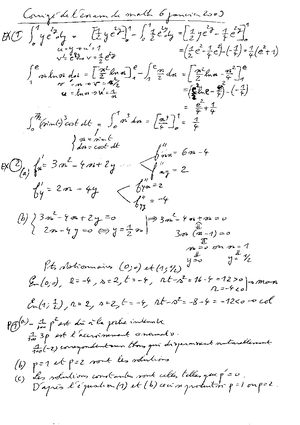 Corrigé de l'examen de math 6 janvier 2003
EX ① ∫₀¹ y e^{2y} dy = [½ y e^{2y}]₀¹ − ∫₀¹ ½ e^{2y} dy = [½ y e^{2y} − ¼ e^{2y}]₀¹
u = y → u' = 1
= (½ e² − ¼ e²) − (−¼) = ¼ (e² + 1)
∫₁^e x ln x dx = [x²/2 ln x]₁^e − ∫₁^e x/2 dx = [x²/2 ln x − x²/4]₁^e
= e²/4 + ¼
cost dt = ∫₀¹ x³ dx = [x⁴/4]₀¹ = ¼
x = sint
dx = cost dt
EX ② (a) f'x = 3x² − 4x + 2y
f''xx = 6x − 4
f''xy = 2
f'y = 2x − 4y
f''yx = 2
f''yy = −4
(b) { 3x² − 4x + 2y = 0
2x − 4y = 0 ⇔ y = ½ x
⇒ 3x² − 4x + x = 0
3x (x − 1) = 0
x = 0 ou x = 1
y = 0 y = ½
Pts stationnaires (0,0) et (1,½)
En (0,0), r = −4, s = 2, t = −4, rt − s² = 16 − 4 = 12 > 0 → max
r = −4 < 0
En (1,½), r = 2, s = 2, t = −4, rt − s² = −8 − 4 = −12 < 0 → col
p² est dû à la
3p est l'accroissement
(−2) correspondent aux thons qui disparaissent naturellement
(b) p = 1 et p = 2 sont les solutions
(c) Les solutions constantes sont celles telles que p' = 0.
D'après l'équation (1) et (b) ceci se produit si p = 1 ou p = 2.